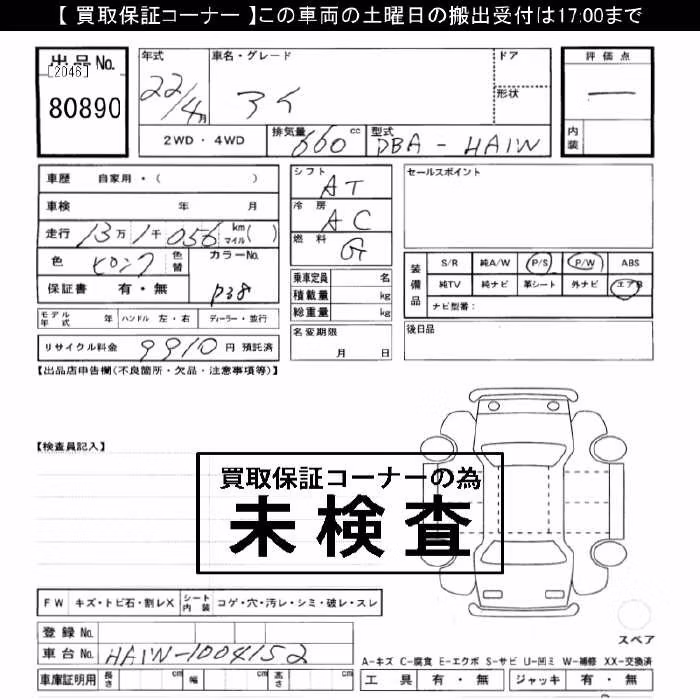 【 買取保証コーナー 】この車両の土曜日の搬出受付は17:00まで
出品No.
[2046]
80890
年式
22/4月
車名・グレード
アイ
ドア
形状
評価点
—
内装
2WD・4WD
排気量 660 cc
型式 DBA-HA1W
車歴 自家用・( )
車検 年 月
走行 13万1千056 km マイル ( )
色 ピンク 色替
カラーNo. P38
保証書 有・無
モデル年式 年 ハンドル 左・右 ディーラー・並行
リサイクル料金 9910 円 預託済
シフト AT
冷房 AC
燃料 G
乗車定員 名
積載量 kg
総重量 kg
名変期限
月 日
セールスポイント
装備品
S/R 純A/W P/S P/W ABS
純TV 純ナビ 革シート 外ナビ エアB
ナビ型番:
後日品
【出品店申告欄(不良箇所・欠品・注意事項等)】
【検査員記入】
買取保証コーナーの為
未検査
FW キズ・トビ石・割レX シート内装 コゲ・穴・汚レ・シミ・破レ・スレ
登録No.
車台No. HA1W-1004152
車庫証明用 長さ cm 幅 cm 高さ cm
スペア
A-キズ C-腐食 E-エクボ S-サビ U-凹ミ W-補修 XX-交換済
工具 有・無 ジャッキ 有・無